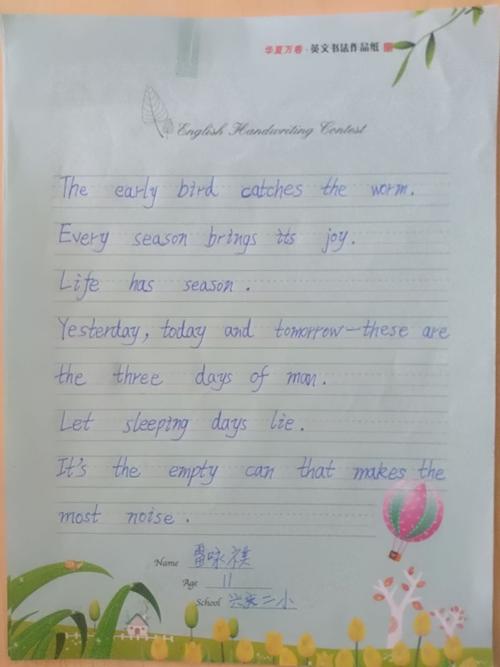 华夏万卷·英文书法作品纸
English Handwriting Contest
The early bird catches the worm.
Every season brings its joy.
Life has season.
Yesterday, today and tomorrow—these are
the three days of man.
Let sleeping days lie.
It's the empty can that makes the
most noise.
Name 雷咏祺
Age 11
School 兴泉二小